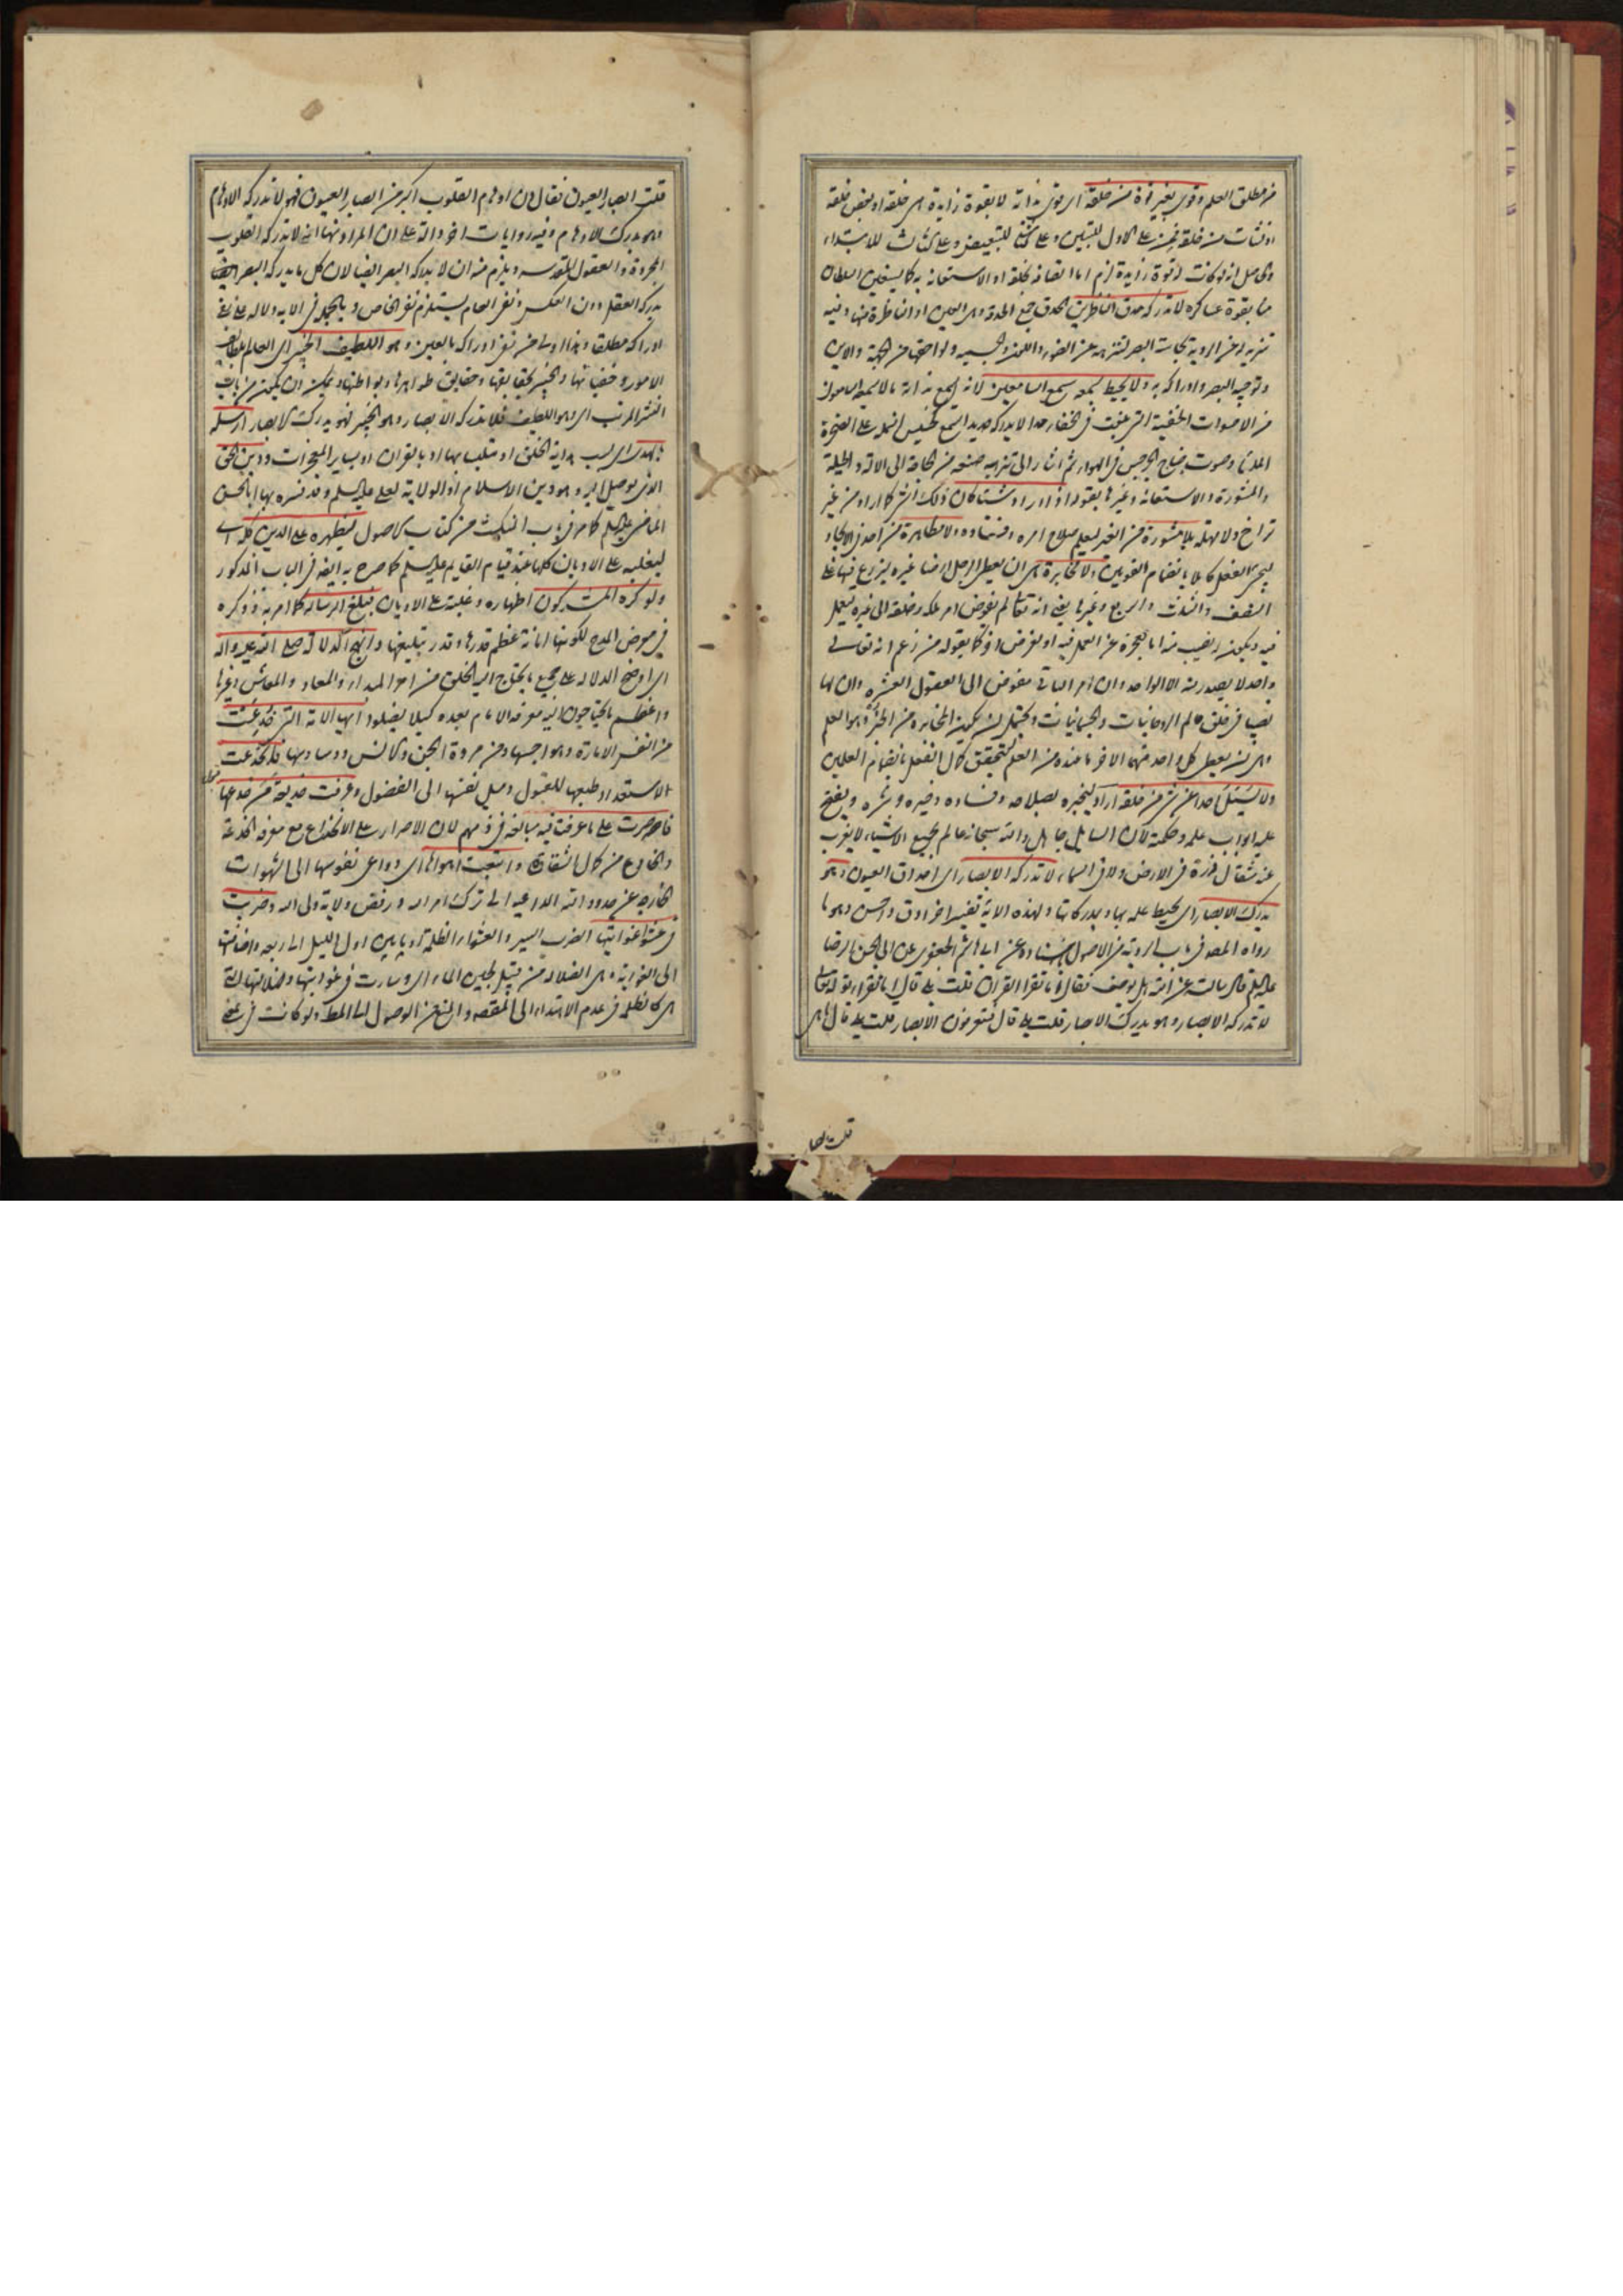 من مطلق العلم وقوى بغير قوة من خلقه اى قوى بذاته لا بقوة زايدة هى خلقه او بعض خلقه
او نشات من خلقه فمن على الاول للتبيين وعلى الثانى للتبعيض وعلى الثالث للابتداء
والحاصل انه لو كانت له قوة زايدة لزم اما اتصافه بخلقه او الاستعانة به كما يستعين السلطان
منا بقوة عساكره لا تدركه حدق الناظرين الحدق جمع الحدقة وهى العين او الناظرة منها وفيه
تنزيه له عن الروية بحاسة البصر لتنزهه عن الضوء واللون والجسمية ولواحقها من الجهة والاين
وتوجيه البصر وادراكه به ولا يحيط بسمعه سمع السامعين لانه يسمع بذاته ما لا يسمعه السامعون
من الاصوات الخفية التى بلغت فى الخفاء حدا لا يدركه حديد السمع كحسيس النمل على الصخرة
الملساء وصوت جناح الجرجس فى الهواء ثم اشار الى تنزيه صنعه من الحاجة الى الالة والحيلة
والمشورة والاستعانة وغيرها بقوله اذا اراد شيئا كان ذلك الشىء كما اراد من غير
تراخ ولا مهلة بلا مشورة من الغير ليعلم صلاح امره وفساده ولا مظاهرة من احد فى الايجاد
ليجىء الفعل كاملا بانضمام القوتين ولا مخابرة هى ان يعطى الرجل ارضا غيره ليزرع فيها على
النصف والثلث والربع وغيرها يعنى انه تعالى لم يفوض امر ملكه وخلقه الى غيره ليعمل
فيه ويكون له نصيب منه اما لعجزه عن العمل فيه او لغرض اخر كما يقوله من زعم انه تعالى
واحد لا يصدر منه الا الواحد وان امر الباقى مفوض الى العقول العشرة وان لها
نصيبا فى خلق عالم الروحانيات والجسمانيات ويحتمل ان يكون المخابرة من الخبر وهو العلم
وهى ان يعطى كل واحد منهما الاخر ما عنده من العلم ليتحقق كمال الفعل بانضمام العلمين
ولا يسئل احدا عن شىء من خلقه اراده ليخبره بصلاحه وفساده وخيره وشره ويفتح
عليه ابواب علمه وحكمته لان السايل جاهل والله سبحانه عالم بجميع الاشياء لا يعزب
عنه مثقال ذرة فى الارض ولا فى السماء لا تدركه الابصار اى احداق العيون وهو
يدرك الابصار اى يحيط علمه بها وبمدركاتها ولهذه الاية تفسير اخر ادق واحسن وهو ما
رواه المصنف فى باب الروية من الاصول باسناده عن ابى هاشم الجعفرى عن ابى الحسن الرضا
عليه السلم قال سالته عن الله هل يوصف فقال اما تقرا القران قلت بلى قال اما تقرا قوله تعالى
لا تدركه الابصار وهو يدرك الابصار قلت بلى قال فتعرفون الابصار قلت بلى قال ما هى
قلت ابصار
قلت ابصار العيون فقال ان اوهام القلوب اكبر من ابصار العيون فهو لا تدركه الاوهام
وهو يدرك الاوهام وفيه روايات اخر دالة على ان المراد منها انه لا تدركه القلوب
المجردة والعقول المقدسة ويلزم منه ان لا يدركه البصر ايضا لان كل ما يدركه البصر ايضا
يدركه العقل دون العكس ونفى العام يستلزم نفى الخاص وبالجملة فى الاية دلالة على نفى
ادراكه مطلقا وهذا اولى من نفى ادراكه بالعين وهو اللطيف الخبير اى العالم بلطايف
الامور وخفياتها والخبير بحقايقها ودقايق ظواهرها وبواطنها ويمكن ان يكون من باب
النشر المرتب اى وهو اللطيف فلا تدركه الابصار وهو الخبير فهو يدرك الابصار ارسله
بالهدى اى بسبب هداية الخلق او متلبسا بها او بالقران او بساير المعجزات ودين الحق
الذى يوصل اليه وهو دين الاسلام او الولاية لعلى عليه السلم وقد فسره بها ابو الحسن
الماضى عليه السلم كما مر فى باب النكت من كتاب الاصول ليظهره على الدين كله اى
ليغلبه على الاديان كلها عند قيام القايم عليه السلم كما صرح به ايضا فى الباب المذكور
ولو كره المشركون اظهاره وغلبته على الاديان فبلغ الرسالة كما امر به وذكره
فى معرض المدح لكونها امانة عظم قدرها وقدر تبليغها وانهج الدلالة صلى الله عليه واله
اى اوضح الدلالة على جميع ما يحتاج اليه الخلق من امر المبداء والمعاد والمعاش وغيرها
واعظم ما يحتاجون اليه معرفة الامام بعده كيلا يضلوا ايها الامة التى خدعت
من النفس الامارة وهواجسها ومن مردة الجن والانس ووساوسها فانخدعت
الاستعداد طبعها للقبول وميل نفسها الى الفضول وعرفت خديعة من خدعها
فاصرت على ما عرفت فيه مبالغة فى ذمهم لان الاصرار على الانخداع مع معرفة الخدعة
والخادع من كمال الشقاوة واتبعت اهواءها اى دواعى نفوسها الى الشهوات
الخارجة عن حدود الله الداعية الى ترك امر الله ورفض ولاية ولى الله وضربت
فى عشواء غوايتها الضرب السير والعشواء الظلمة او ما بين اول الليل الى ربعه واضافتها
الى الغواية وهى الضلالة من قبيل لجين الماء اى وسارت فى غوايتها وضلالتها التى
هى كالظلمة فى عدم الاهتداء الى المقصد والمنع عن الوصول الى المط ولو كانت فى